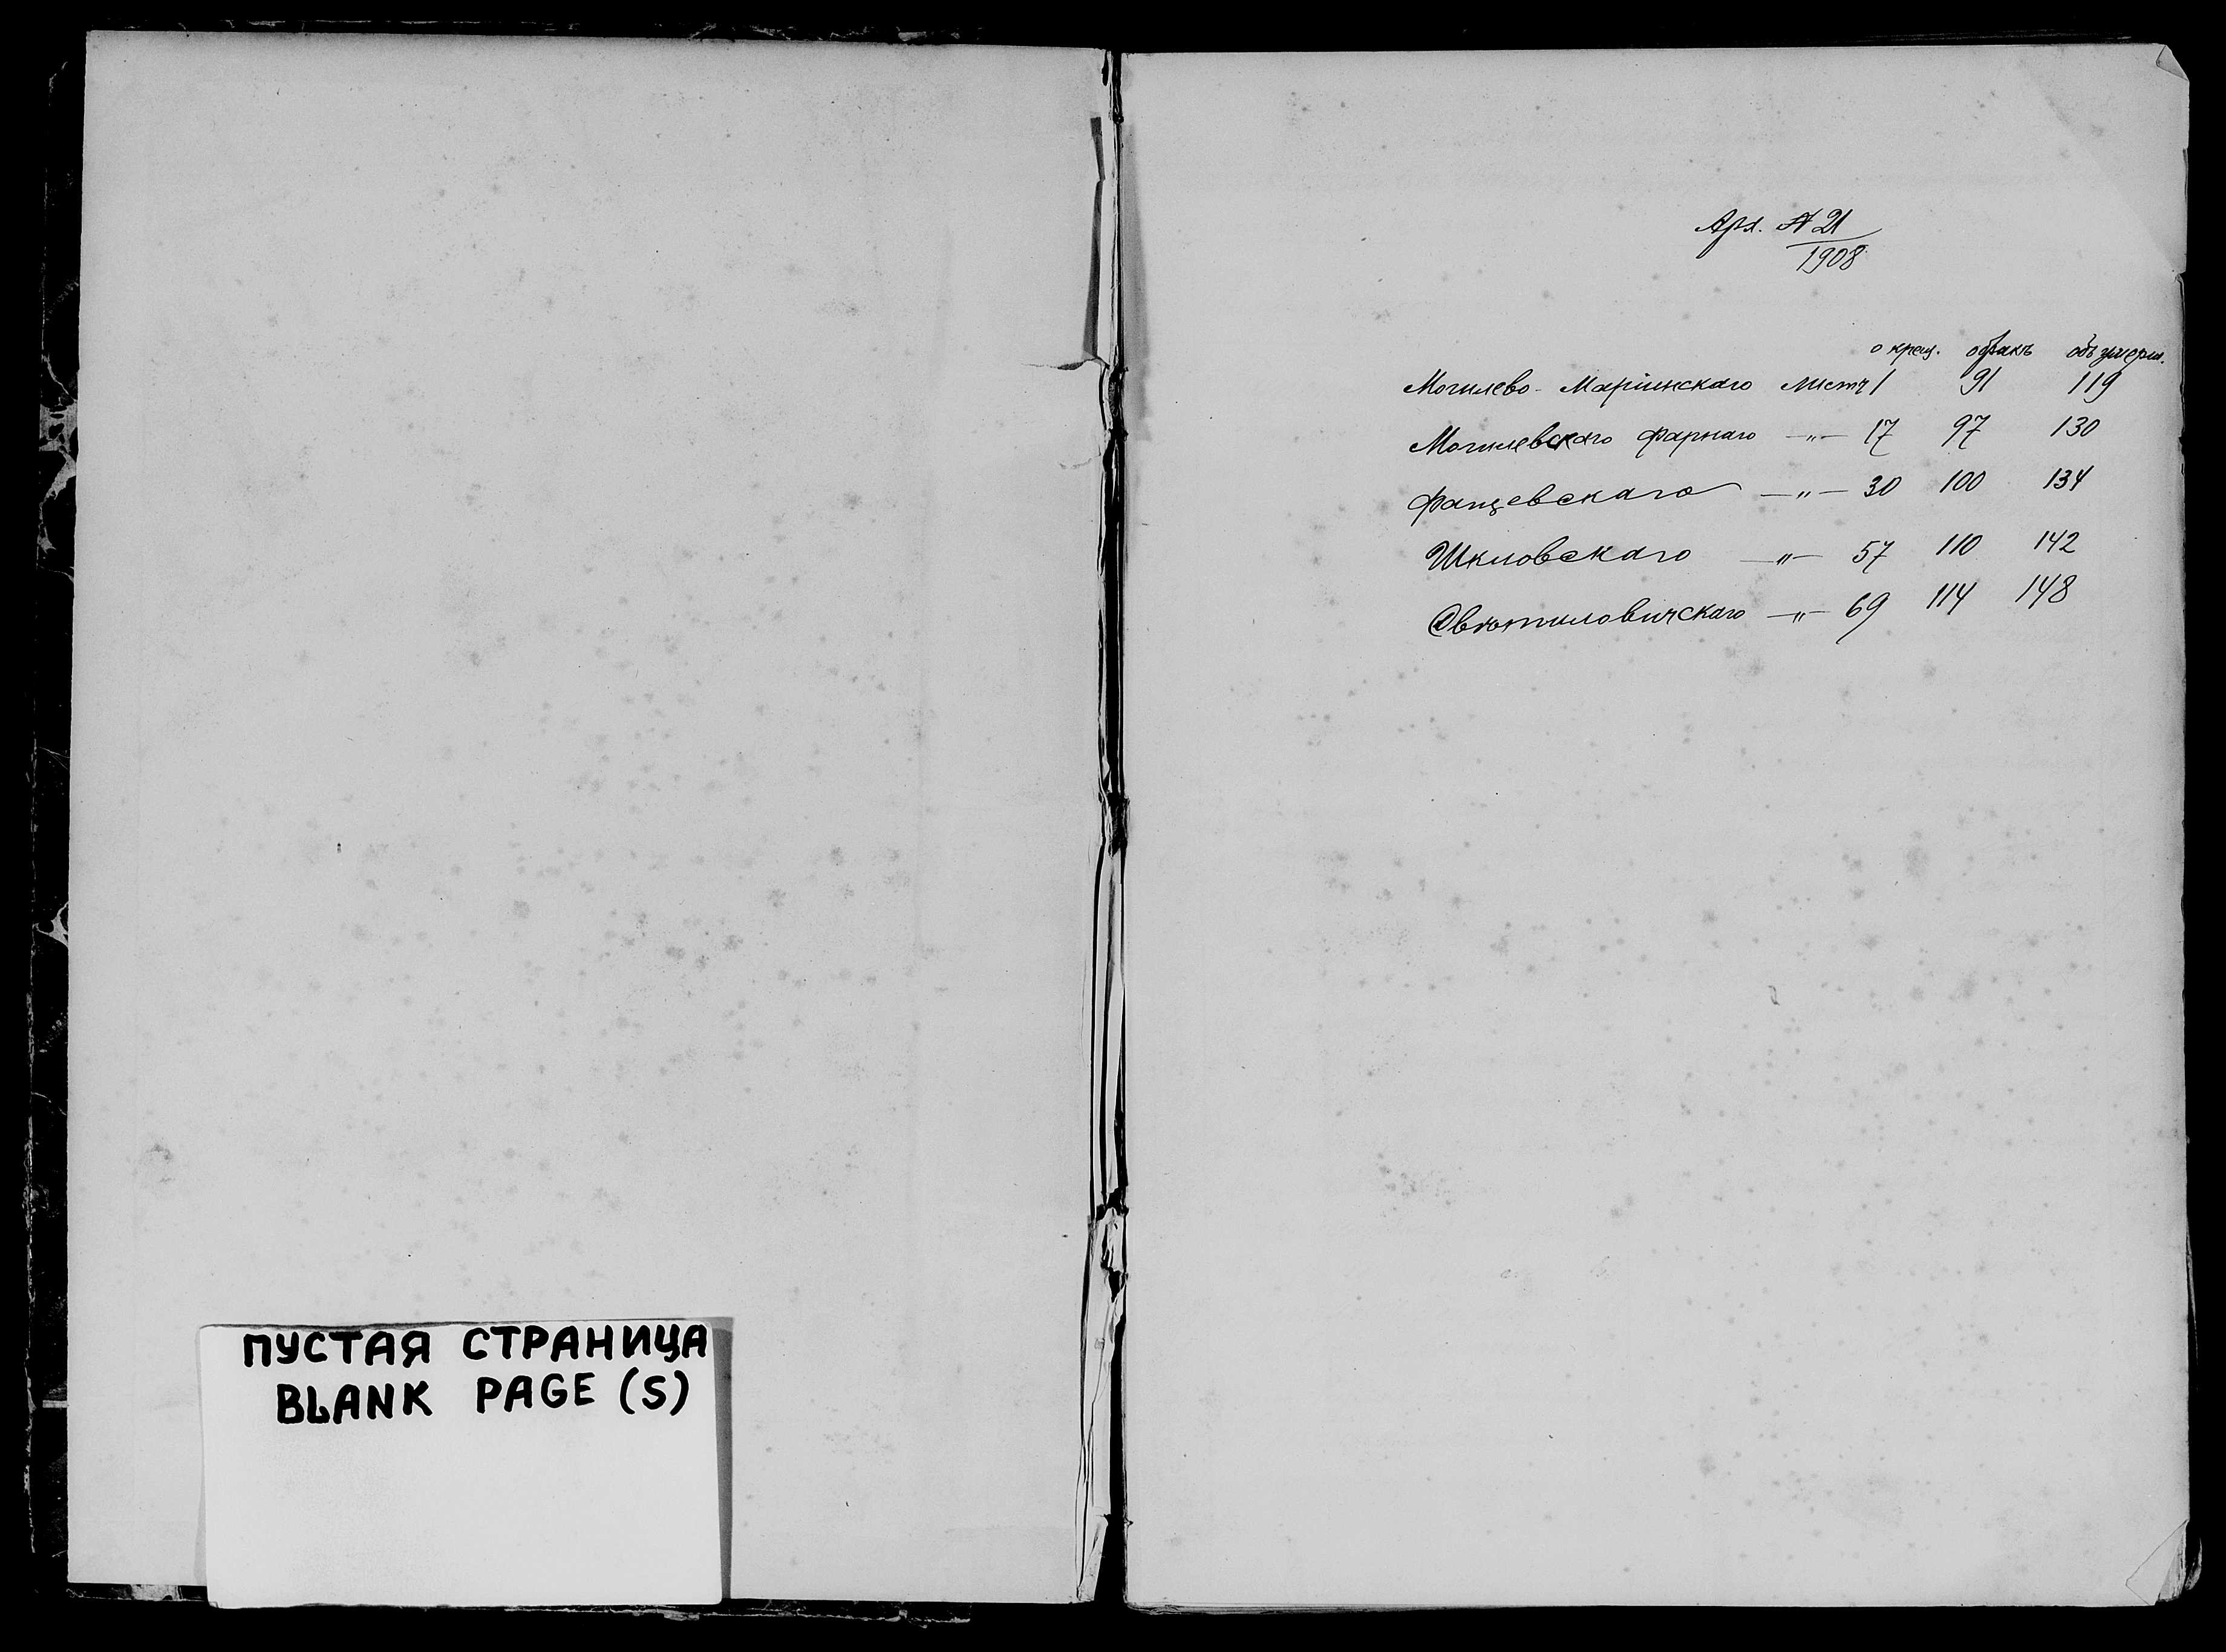 ПУСТАЯ СТРАНИЦА
BLANK PAGE (S)
Арх. № 21
1908
о крещ. о бракъ объ умерш.
Могилево-Маріинскаго листъ 1 91 119
Могилевскаго Фарнаго —"— 17 97 130
Фащевскаго —"— 30 100 134
Шкловскаго —"— 57 110 142
Святиловичскаго —"— 69 114 148